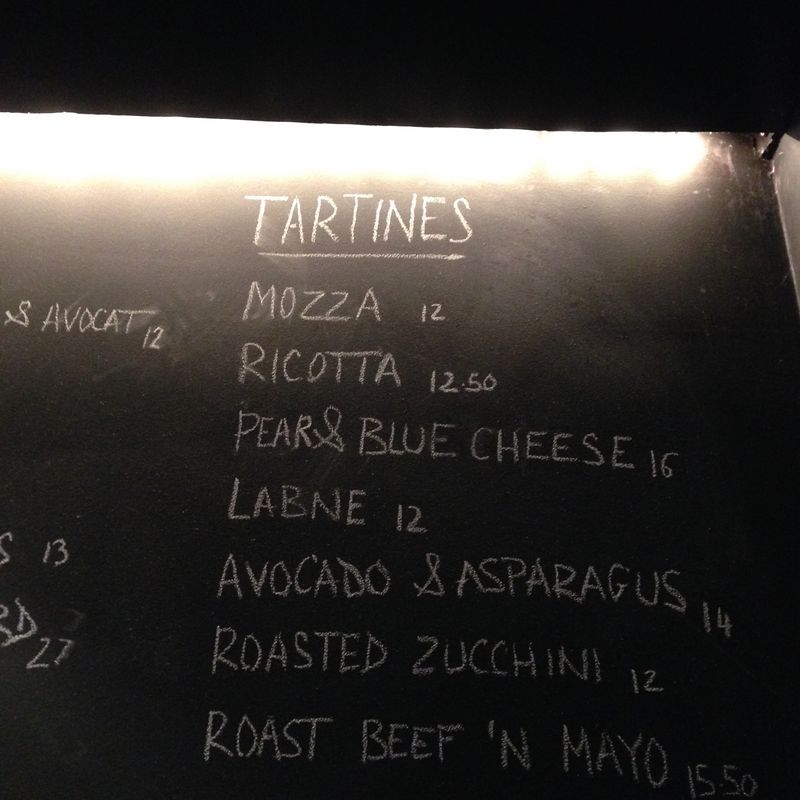 TARTINES
MOZZA 12
RICOTTA 12.50
PEAR & BLUE CHEESE 16
LABNE 12
AVOCADO & ASPARAGUS 14
ROASTED ZUCCHINI 12
ROAST BEEF 'N MAYO 15.50
& AVOCAT 12
S 13
RD 27